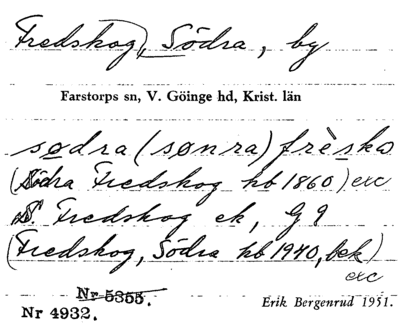 Fredskog, Södra, by
Farstorps sn, V. Göinge hd, Krist. län
sødra (sønra) frèska
(Södra Fredskog hb 1860) exc
S. Fredskog ek, G 9
(Fredskog, Södra hb 1940, bek)
exc
Nr 5353.
Erik Bergenrud 1951.
Nr 4932.